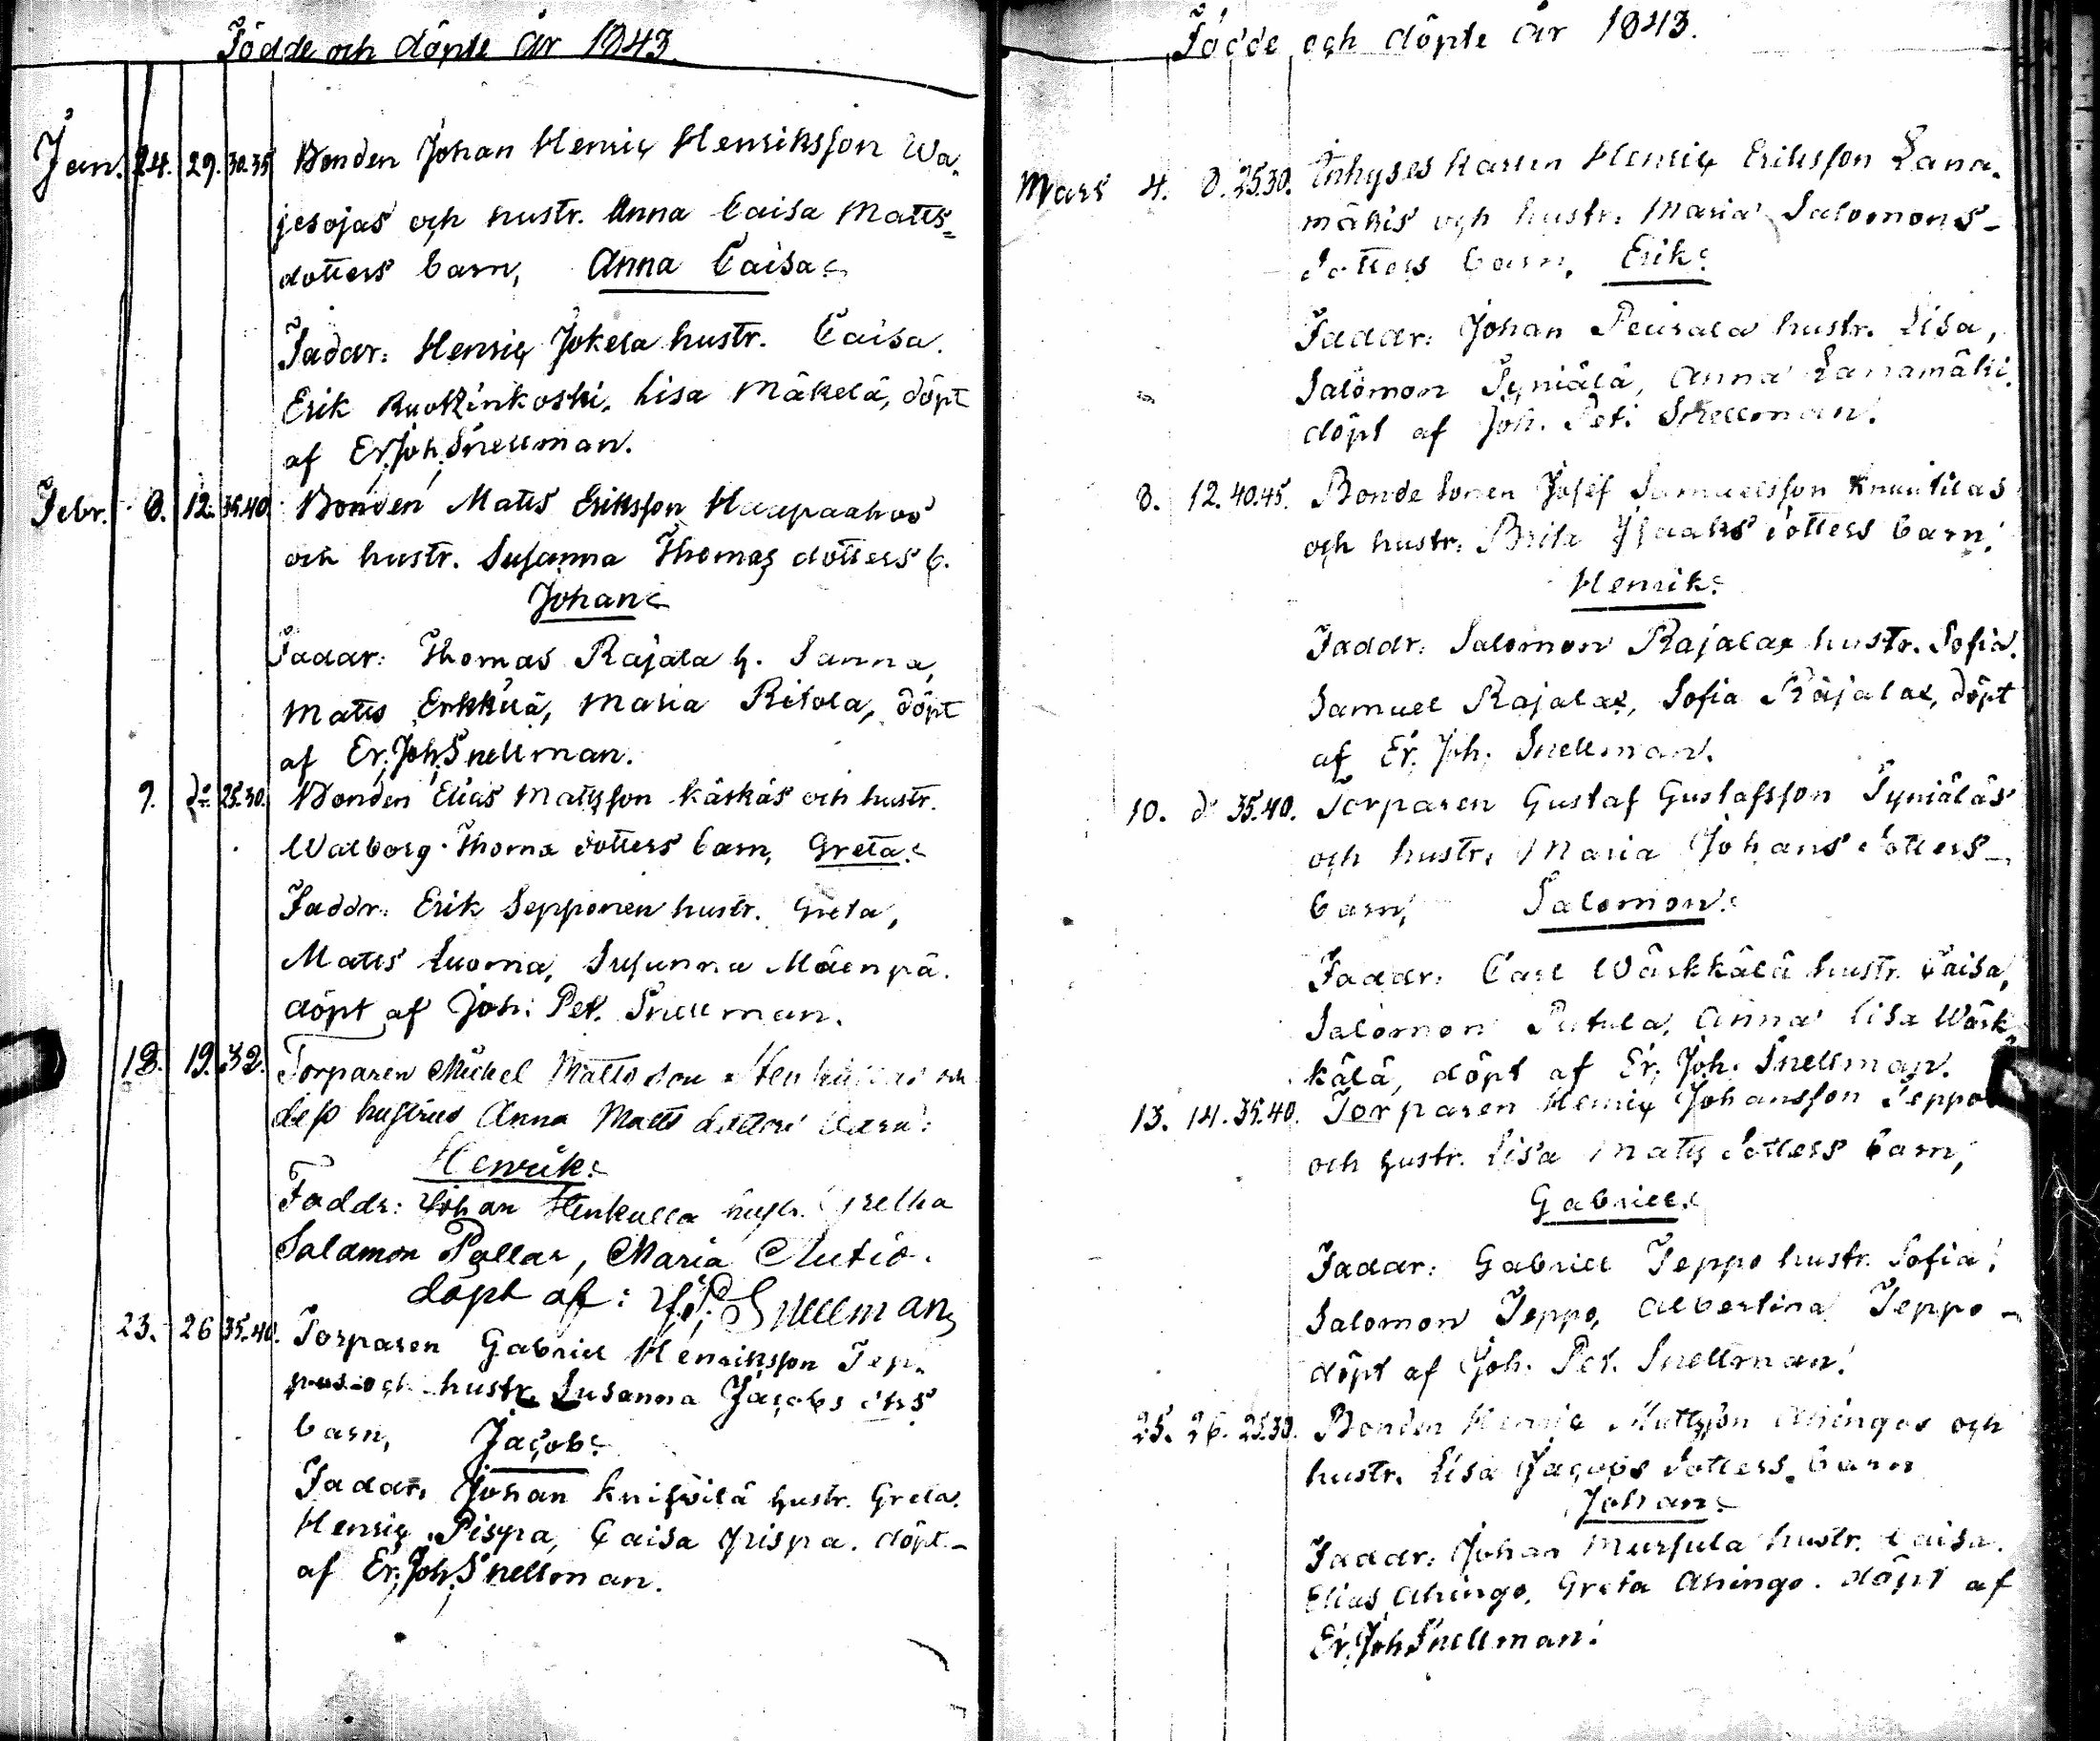 Födde och döpte år 1843.
Jan. 24. 29. 30.35 Bonden Johan Henric Henriksson Wa-
jesojas och hustr. Anna Caisa Matts=
dotters barn, Anna Caisa
Faddr: Henric Jokela hustr. Caisa.
Erik Ruotzinkoski, Lisa Mäkelä, döpt
af Er. Joh. Snellman.
Febr. 8. 12. 35.40. Bonden Matts Eriksson Haapaahos
och hustr. Susanna Thomas dotters b.
Johan
Faddr: Thomas Rajala h. Sanna,
Matts Erkkilä, Maria Ritola, döpt
af Er. Joh. Snellman.
9. do 25.30. Bonden Elias Mattsson Käskäs och hustr.
Walborg Thoma dotters barn, Greta
Faddr: Erik Sepponen hustr. Greta,
Matts Luoma, Susanna Mäenpä.
döpt af Joh. Pet. Snellman.
18. 19. 32. Torparen Michel Matts son och
dess hustrus Anna Matts dotters barn:
Henrik
Faddr: Johan Henkulla hustr. Gretha
Salamon Pallar, Maria Autio.
döpt af: J. P. Snellman
23. 26 35.40. Torparen Gabriel Henriksson Jep-
pos och hustr. Susanna Jacobs dtrs
barn, Jacob
Faddr, Johan Knifsilä hustr. Greta.
Henric Pispa, Caisa Pispa. döpt
af Er. Joh. Snellman.
Födde och döpte år 1843.
Mars 4. 8. 25.30. Inhyses karlen Henric Eriksson Lana-
mäkis och hustr. Maria Salomons-
dotters barn, Erik
Faddr: Johan Peurala hustr. Lisa,
Salomon Tyniälä, Anna Lanamäki.
döpt af Joh. Pet. Snellman.
8. 12. 40.45. Bonde sonen Josef Samuelsson Knuutilas
och hustr. Brita Isaaks dotters barn,
Henrik
Faddr: Salomon Rajalax hustr. Sofia.
Samuel Rajalax, Sofia Rajalax, döpt
af Er. Joh. Snellman.
10. do 35.40. Torparen Gustaf Gustafsson Tyniäläs
och hustr. Maria Johans dotters
barn, Salomon
Faddr: Carl Wärkkälä hustr. Caisa,
Salomon Putula, Anna Lisa Wärk-
kälä, döpt af Er. Joh. Snellman.
13. 14. 35.40. Torparen Henric Johansson Jeppo
och hustr. Lisa Matts dotters barn,
Gabriel
Faddr: Gabriel Jeppo hustr. Sofia.
Salomon Jeppo, Albertina Jeppo
döpt af Joh. Pet. Snellman.
25. 26. 25.30. Bonden Henric Mattsson Ahingos och
hustr. Lisa Jacobs dotters barn
Johan
Faddr: Johan Mursula hustr. Caisa.
Elias Ahingo, Greta Ahingo. döpt af
Er. Joh Snellman.